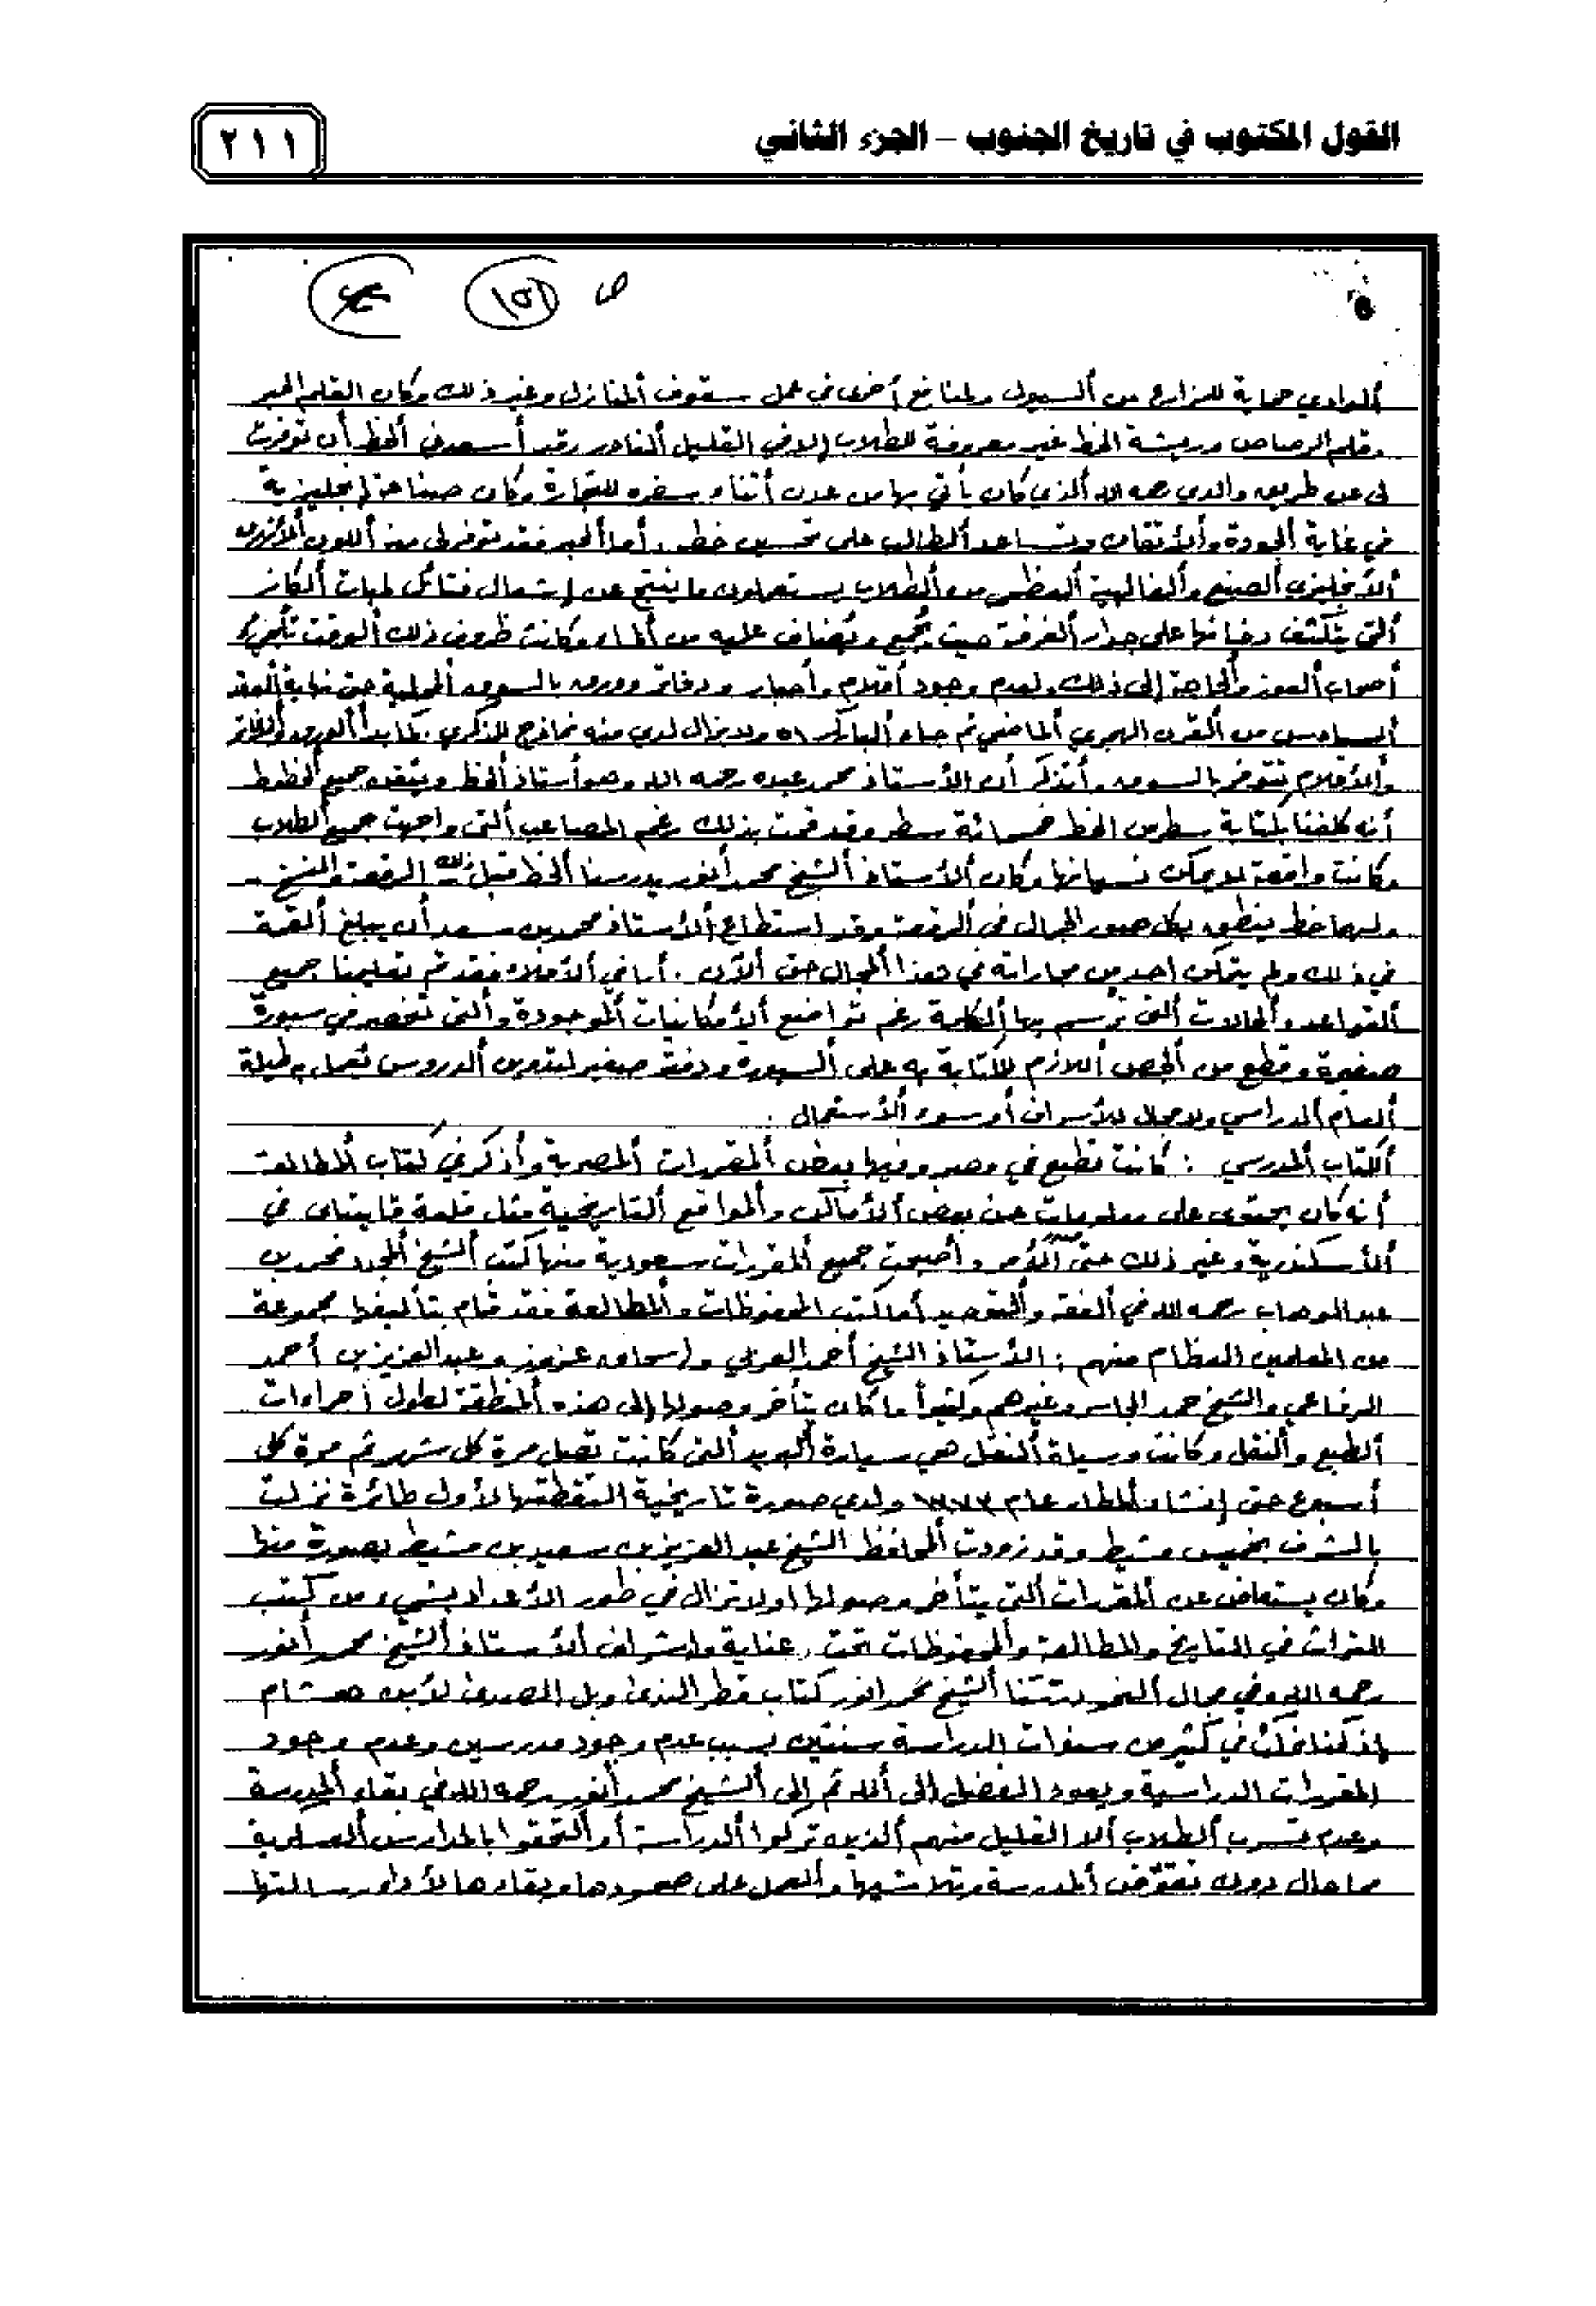 القول المكتوب في تاريخ الجنوب – الجزء الثاني
٢١١
ص (١٥١)
6
الوادي حماية للمزارع من السيول ولمنافع أخرى في عمل سقوف المنازل وغير ذلك وكان القلم الحبر
وقلم الرصاص وريشة الخط غير معروفة للطلاب إلا في القليل النادر وقد أسعدني الحظ أن توفرت
لي عن طريق والدي رحمه الله الذي كان يأتي بها من عدن أثناء سفره للتجارة وكان صناعة إنجليزية
في غاية الجودة والأتقان وتساعد الطالب على تحسين خطه. أما الحبر فقد توفر لي منه اللون الأزرق
الأنجليزي الصنع والغالبية العظمى من الطلاب يستعملون ما ينتج عن إشتعال فتائل لمبات الكاز
التي يتكثف دخانها على جدار الغرفة حيث يجمع ويضاف عليه من الماء وكانت ظروف ذلك الوقت
أصوات العوز والحاجة إلى ذلك ولعدم وجود أقلام وأحبار ودفاتر وورق بالسوق المحلية حتى نهاية العقد
السادس من القرن الهجري الماضي ثم جاء الباركر ٥١ ولا يزال لدي منه نماذج للذكرى. كما بدأ الورق والدفاتر
والأقلام تتوفر بالسوق. وأتذكر أن الأستاذ محمد عبده رحمه الله وهو أستاذ الخط ويتقن جميع الخطوط
أنه كلفنا بكتابة سطرين الخط خمسمائة سطر وقد قمت بذلك رغم المصاعب التي واجهت جميع الطلاب
وكانت واقعة لا يمكن نسيانها وكان الأستاذ الشيخ محمد أنور يدرسنا الخط قبل ذلك الرقعة والنسخ -
ولهما خط ينطق بكل صور الجمال في الرقعة وقد استطاع الأستاذ محمد بن سعد أن يبلغ القمة
في ذلك ولم يتمكن احد من مجاراته في هذا المجال حتى الآن. أما في الأملاء فقد تم تعليمنا جميع
القواعد والحالات التي ترسم بها الكلمة رغم تواضع الأمكانيات الموجودة والتي تنحصر في سبورة
صغيرة وقطع من الجص اللازم للكتابة به على السبورة ودفتر صغير لتدوين الدروس نعمل به طيلة
العام الدراسي ولا مجال للأسراف أو سوء الأستعمال.
الكتاب المدرسي : كانت تطبع في مصر وفيها بعض المقررات المصرية وأذكر في كتاب المطالعة
أنه كان يحتوي على معلومات عن بعض الأماكن والمواقع التاريخية مثل قلعة قايتباي في
الأسكندرية وغير ذلك حتى صدر الأمر وأصبحت جميع المقررات سعودية منها كتب الشيخ المجدد محمد بن
عبدالوهاب رحمه الله في الفقه والتوحيد أما كتب المحفوظات والمطالعة فقد قام بتأليفها مجموعة
من المعلمين العظام منهم : الأستاذ الشيخ أحمد العربي وإسحاق عزوز وعبدالعزيز بن أحمد
الرفاعي والشيخ حمد الجاسر وغيرهم وكثيراً ما كان يتأخر وصولها إلى هذه المنطقة لطول أجراءات
الطبع والنقل وكانت وسيلة النقل هي سيارة البريد التي كانت تصل مرة كل شهر ثم مرة كل
أسبوع حتى إنشاء المطار عام ١٣٧٣ ولدي صورة تاريخية التقطتها لأول طائرة نزلت
بالمشرف بخميس مشيط وقد زودت المحافظ الشيخ عبدالعزيز بن سعيد بن مشيط بصورة منها
وكان يستعاض عن المقررات التي يتأخر وصولها أولا تزال في طور الأعداد بشيء من كتب
التراث في التاريخ والمطالعة والمحفوظات تحت رعاية وإشراف الأستاذ الشيخ محمد أنور
رحمه الله وفي مجال النحو الشيخ محمد انور كتاب قطر الندى وبل الصدى لأبن هشام
إذ كنا في كثير من سنوات الدراسة سنتين بسبب عدم وجود مدرسين وعدم وجود
المقررات الدراسية ويعود الفضل إلى الله ثم إلى الشيخ محمد أنور رحمه الله في بقاء المدرسة
وعدم تسرب الطلاب ألا القليل منهم الذين تركوا الدراسة أو التحقوا بالمدارس العسكرية
مما حال دون تقوض المدرسة وتلاشيها والعمل على صمودها وبقاءها لأداء رسالتها